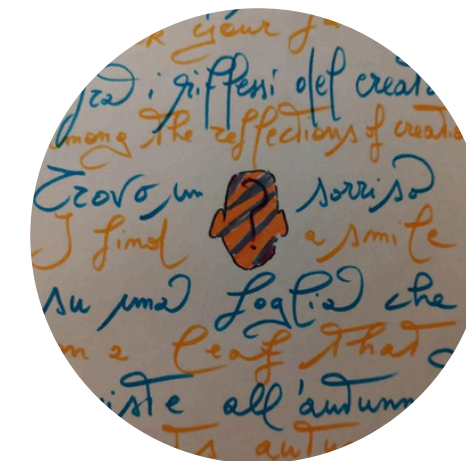 k your fa
fra i riflessi del creat
among the reflections of creatio
Trovo un sorriso
I find a smile
su una foglia che
on a leaf that
iste all'autunn
ts autu